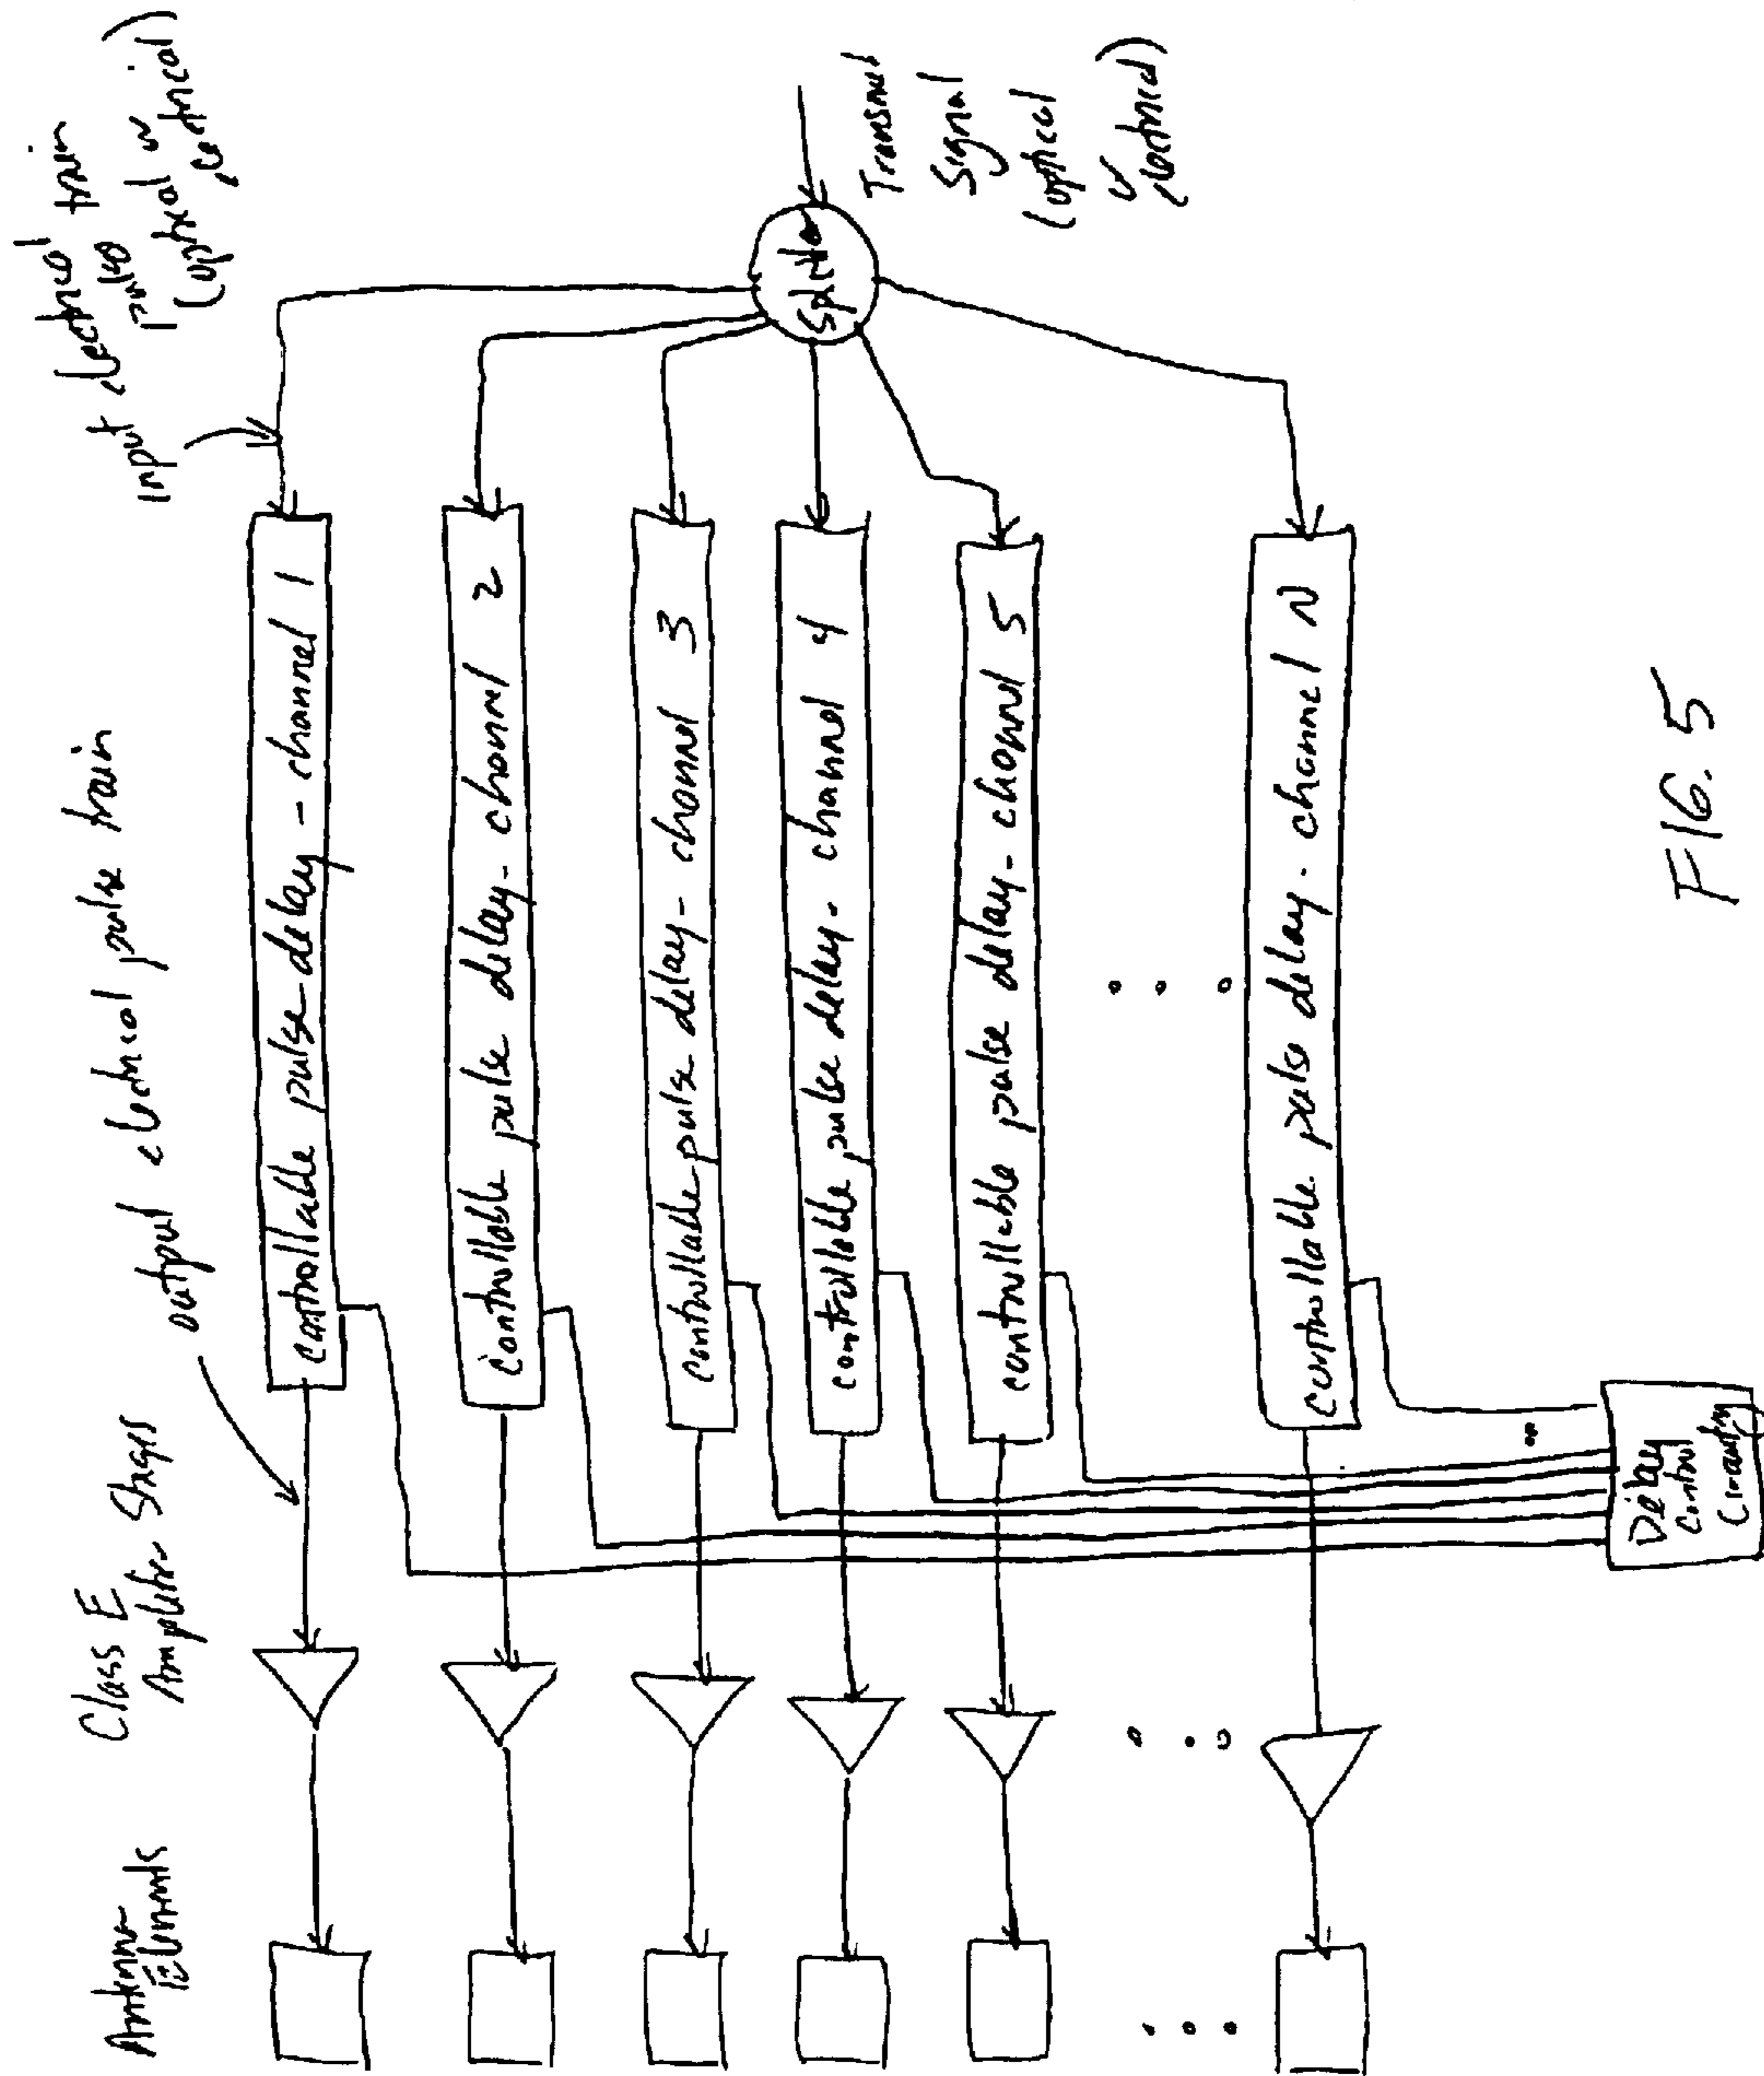 Antenna
Elements
Class E
Amplifier Stages
output electrical pulse train
input electrical train
pulse
(optical or
electrical)
controllable pulse delay - channel 1
controllable pulse delay - channel 2
controllable pulse delay - channel 3
controllable pulse delay - channel 4
controllable pulse delay - channel 5
controllable pulse delay - channel N
splitter
Transmit
Signal
(optical
or
electrical)
Delay
control
Circuitry
FIG. 5